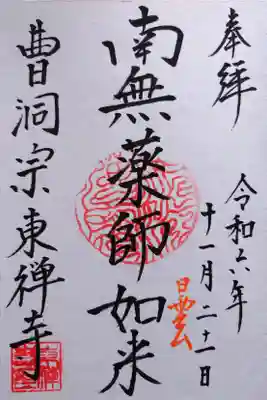 奉拝
令和六年
十一月二十一日
南無薬師如来
曹洞宗東禅寺